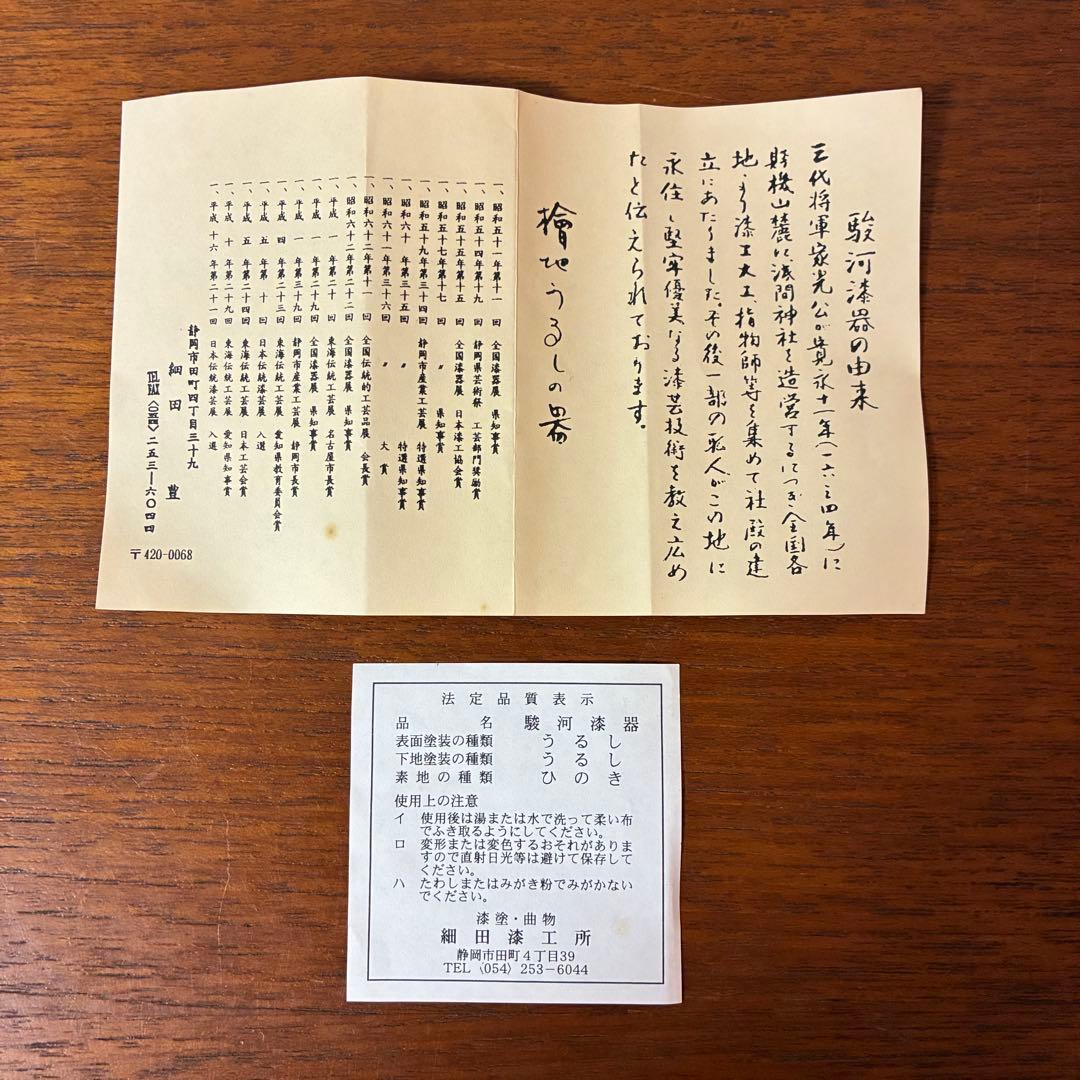 駿河漆器の由来
三代将軍家光公が寛永十一年(一六三四年)に
賤機山麓に浅間神社を造営するにつき全国各
地より漆工大工、指物師等を集めて社殿の建
立にあたりました。その後一部の職人がこの地に
永住し堅牢優美なる漆芸技術を教え広め
たと伝えられております。
檜地うるしの器
一、昭和五十一年第十一回 全国漆器展 県知事賞
一、昭和五十四年第十九回 静岡県芸術祭 工芸部門奨励賞
一、昭和五十五年第十五回 全国漆器展 日本漆工協会賞
一、昭和五十七年第十七回 〃 県知事賞
一、昭和五十九年第三十四回 静岡市産業工芸展 特選県知事賞
一、昭和六十年第三十五回 〃 特選県知事賞
一、昭和六十一年第三十六回 〃 大賞
一、昭和六十二年第十一回 全国伝統的工芸品展 会長賞
一、昭和六十二年第二十二回 全国漆器展 県知事賞
一、平成一年第二十回 東海伝統工芸展 名古屋市長賞
一、平成一年第二十九回 全国漆器展 県知事賞
一、平成一年第三十九回 静岡市産業工芸展 静岡市長賞
一、平成四年第二十三回 東海伝統工芸展 愛知県教育委員会賞
一、平成五年第十回 日本伝統漆芸展 入選
一、平成五年第二十四回 東海伝統工芸展 日本工芸会賞
一、平成十年第二十九回 東海伝統工芸展 愛知県知事賞
一、平成十六年第二十一回 日本伝統漆芸展 入選
静岡市田町四丁目三十九
細田 豊
TEL FAX〈〇五四〉二五三―六〇四四
〒420-0068
法定品質表示
品名 駿河漆器
表面塗装の種類 うるし
下地塗装の種類 うるし
素地の種類 ひのき
使用上の注意
イ 使用後は湯または水で洗って柔い布
でふき取るようにしてください。
ロ 変形または変色するおそれがありま
すので直射日光等は避けて保存して
ください。
ハ たわしまたはみがき粉でみがかない
でください。
漆塗・曲物
細田漆工所
静岡市田町4丁目39
TEL〈054〉253-6044